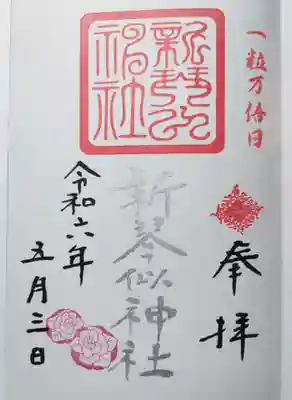 一粒万倍日
奉拝
新琴似神社
令和六年
五月三日